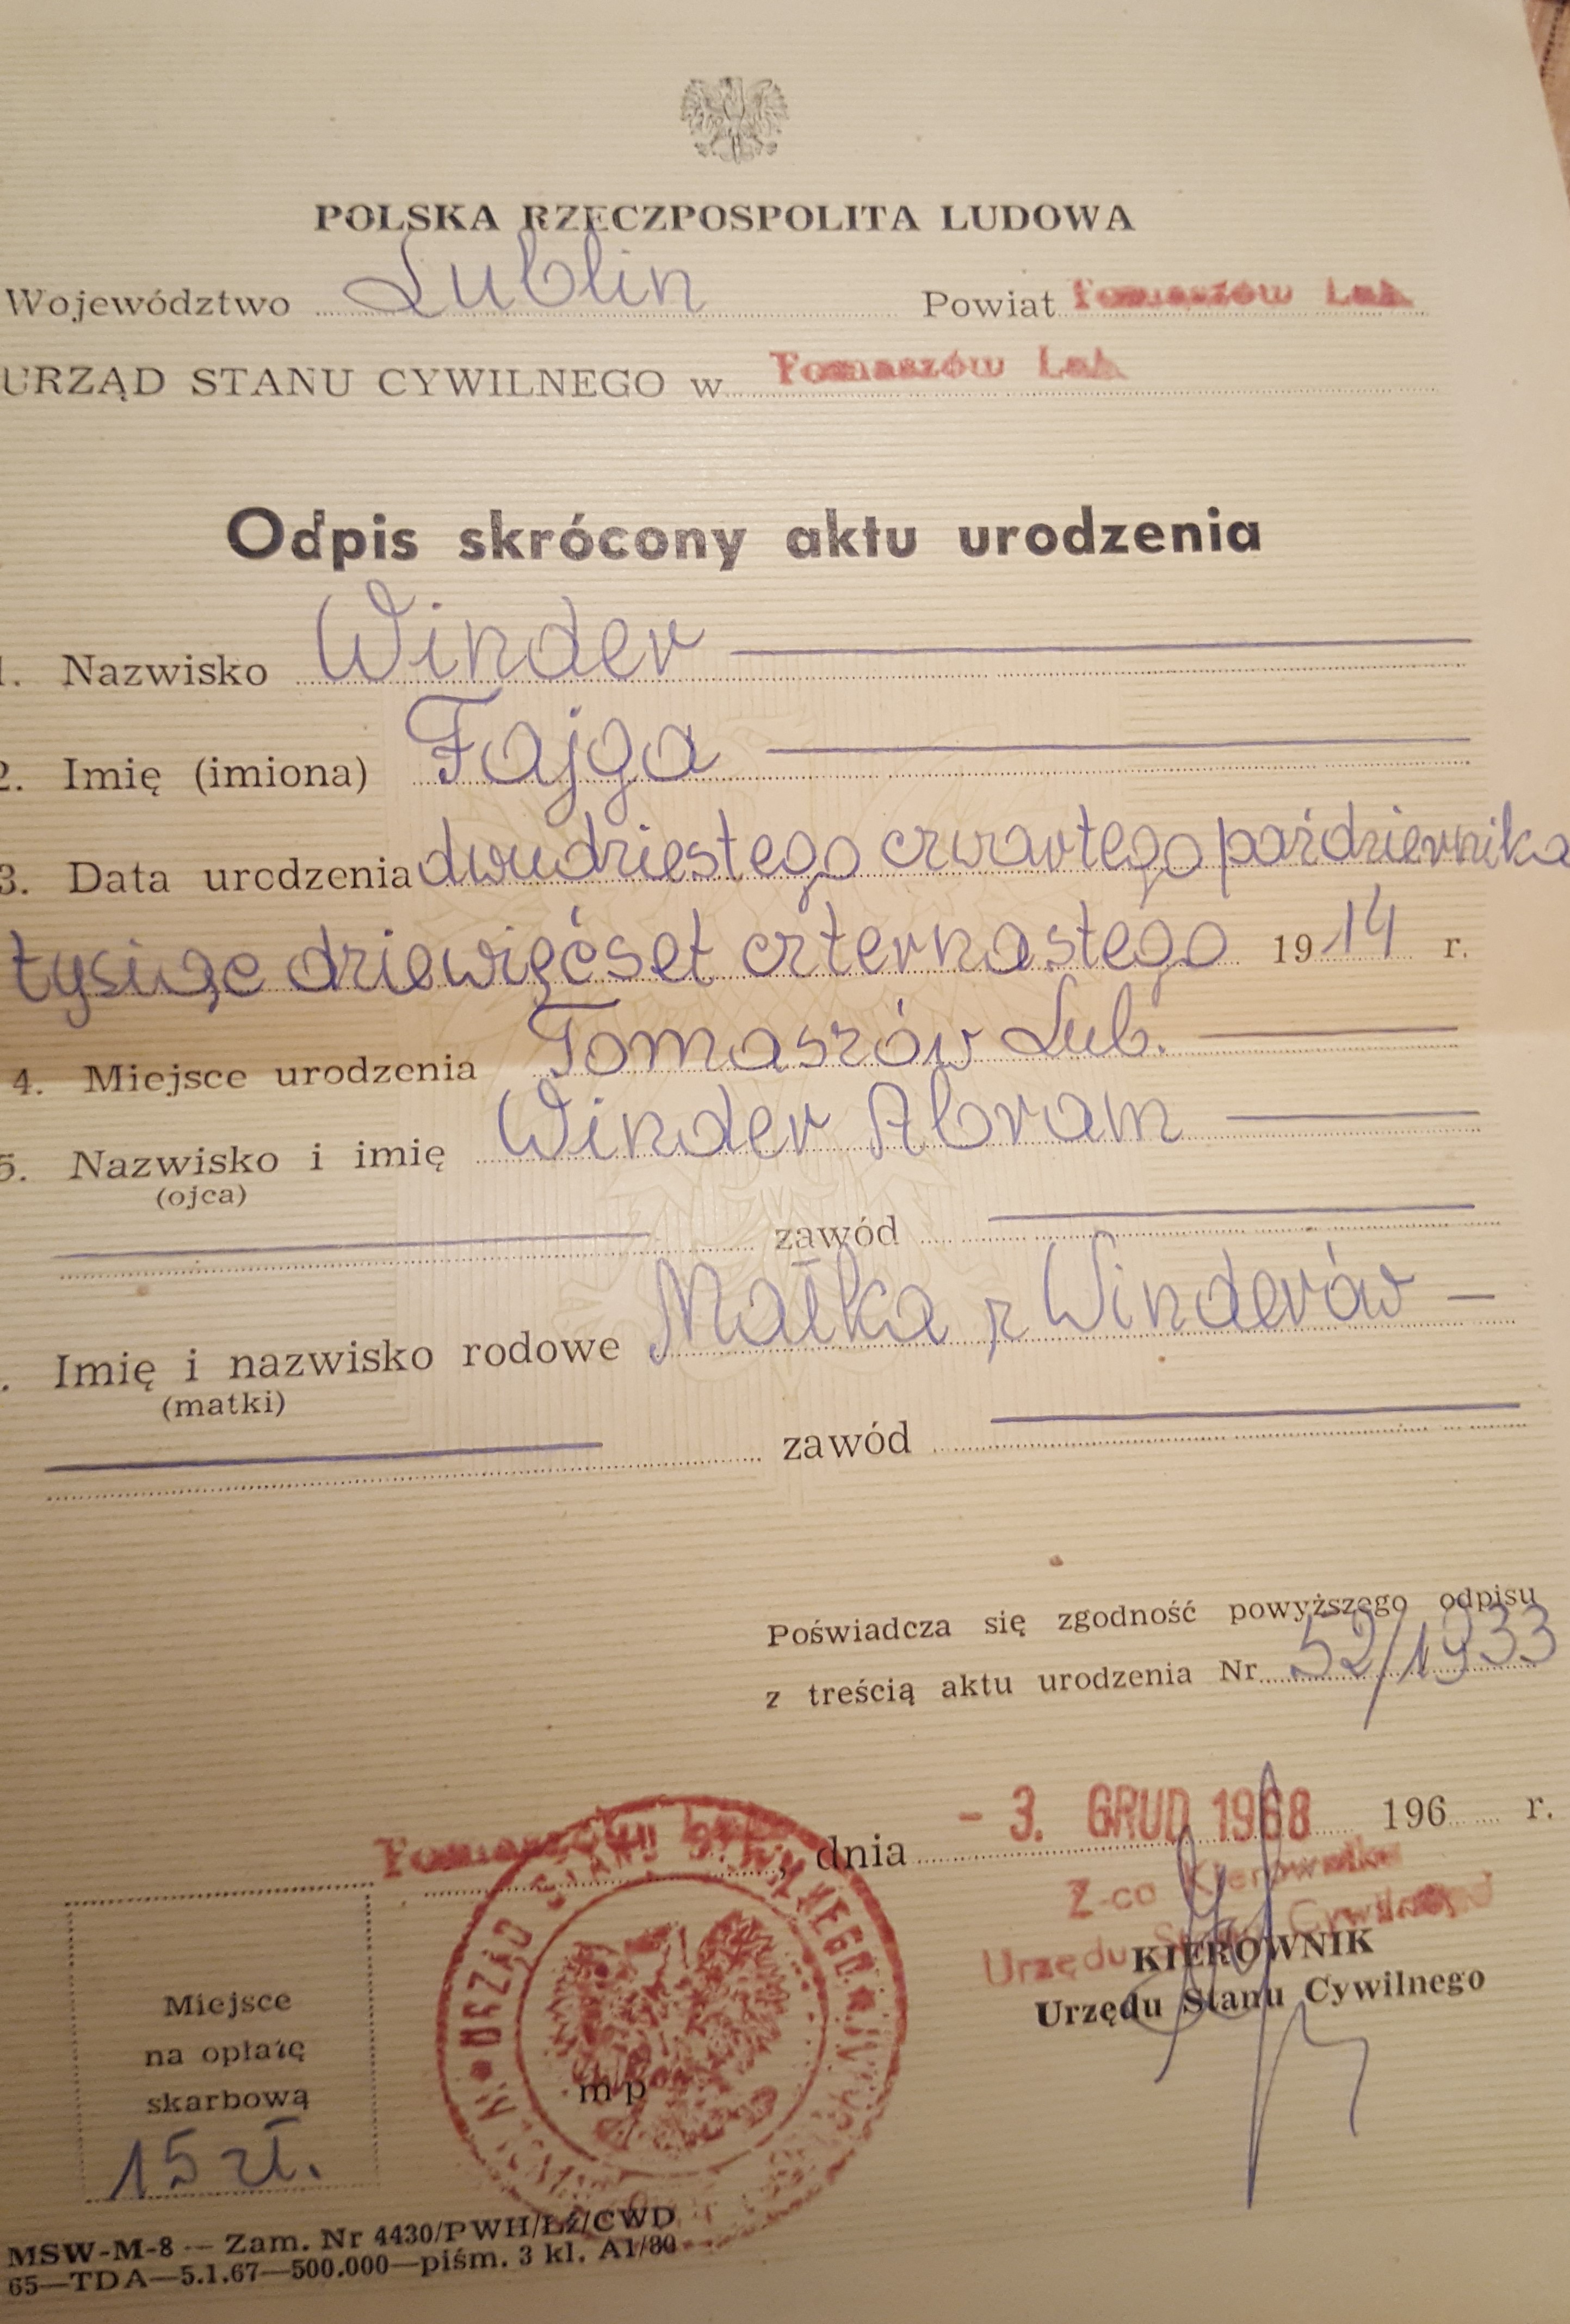 POLSKA RZECZPOSPOLITA LUDOWA
Województwo Lublin Powiat Tomaszów Lub.
URZĄD STANU CYWILNEGO w Tomaszów Lub.
Odpis skrócony aktu urodzenia
1. Nazwisko Winder
2. Imię (imiona) Fajga
3. Data urodzenia dwudziestego czwartego października
tysiąc dziewięćset czternastego 1914 r.
4. Miejsce urodzenia Tomaszów Lub.
5. Nazwisko i imię Winder Abram
(ojca)
zawód
. Imię i nazwisko rodowe Małka z Winderów —
(matki)
zawód
Poświadcza się zgodność powyższego odpisu
z treścią aktu urodzenia Nr 52/1933
Tomaszów Lub., dnia - 3. GRUD 1968 196 r.
Z-ca Kierownika
Urzędu Stanu Cywilnego
KIEROWNIK
Urzędu Stanu Cywilnego
URZĄD STANU CYWILNEGO
Miejsce
na opłatę
skarbową
mp
15 zł.
MSW-M-8 — Zam. Nr 4430/PWH/Łź/CWD
65—TDA—5.1.67—500.000—piśm. 3 kl. A1/80